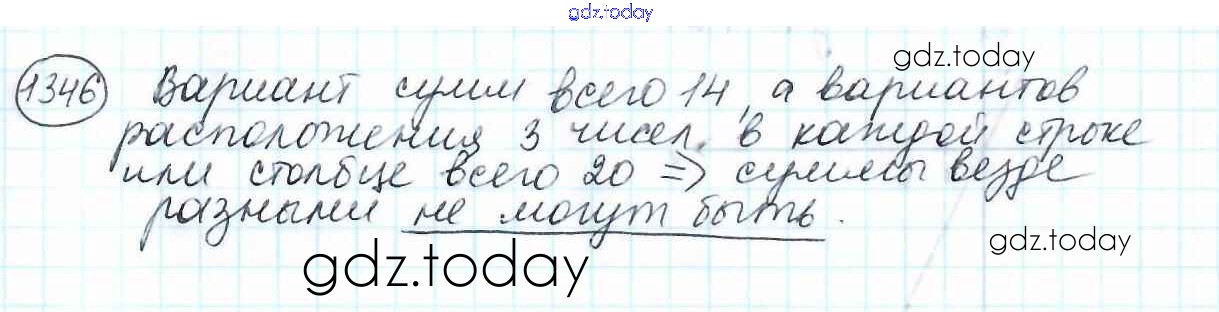 gdz.today
gdz.today
1346 Вариант сумм всего 14, а вариантов
расположения 3 чисел в каждой строке
или столбце всего 20 => суммы везде
разными не могут быть.
gdz.today
gdz.today